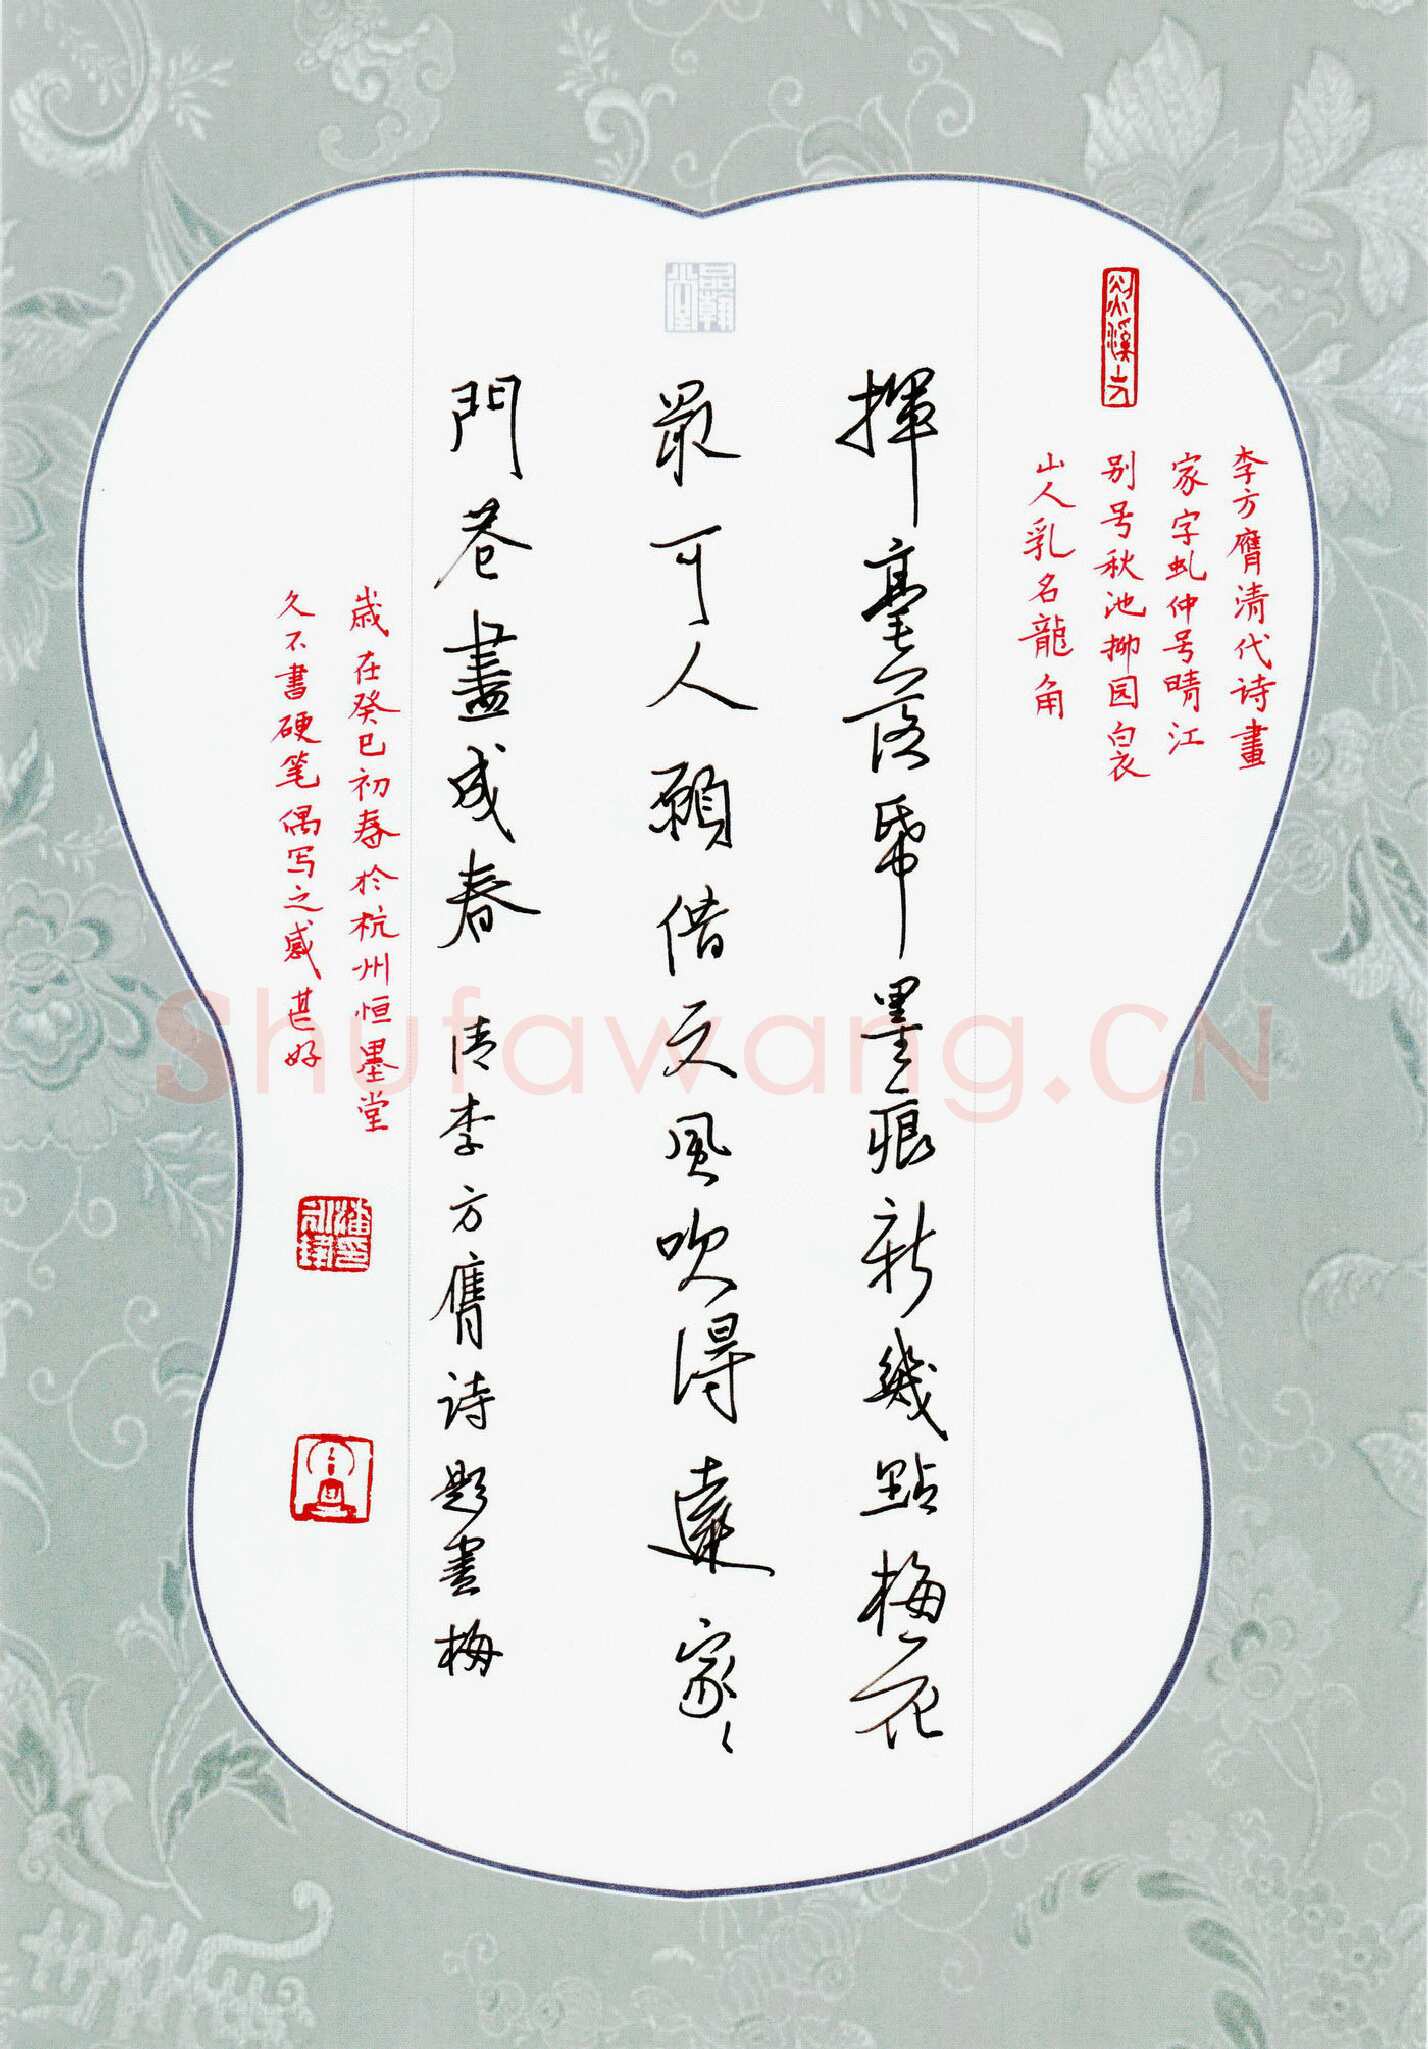 李方膺清代诗畫
家字虬仲号晴江
别号秋池抑园白衣
山人乳名龍角
揮毫落帋墨痕新幾點梅花
最可人願借天風吹得遠家〻
門巷盡成春 清李方膺诗題畫梅
歲在癸巳初春於杭州恒墨堂
久不書硬笔偶写之感甚好
品翰堂
Shufawang.CN